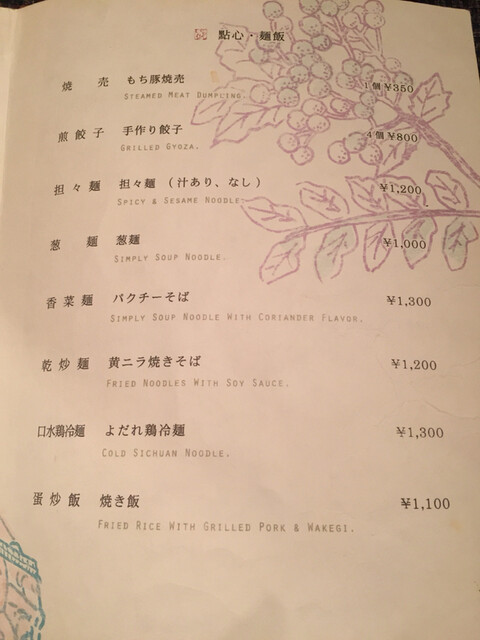 點心・麺飯
焼売 もち豚焼売 1個 ¥350
STEAMED MEAT DUMPLING.
煎餃子 手作り餃子 4個 ¥800
GRILLED GYOZA.
担々麺 担々麺(汁あり、なし) ¥1,200
SPICY & SESAME NOODLE.
葱麺 葱麺 ¥1,000
SIMPLY SOUP NOODLE.
香菜麺 パクチーそば ¥1,300
SIMPLY SOUP NOODLE WITH CORIANDER FLAVOR.
乾炒麺 黄ニラ焼きそば ¥1,200
FRIED NOODLES WITH SOY SAUCE.
口水鶏冷麺 よだれ鶏冷麺 ¥1,300
COLD SICHUAN NOODLE.
蛋炒飯 焼き飯 ¥1,100
FRIED RICE WITH GRILLED PORK & WAKEGI.